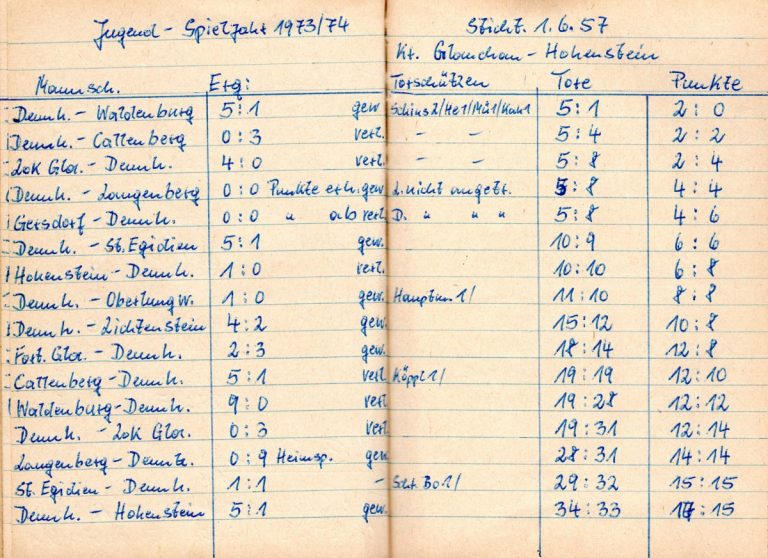 Jugend - Spieljahr 1973/74 Sticht. 1.6.57
Kr. Glauchau - Hohenstein
Mannsch. Erg: Torschützen Tore Punkte
Dennh. - Waldenburg 5:1 gew. Schins2/He1/Mü1/Kuh1 5:1 2:0
Dennh. - Callenberg 0:3 verl. - - 5:4 2:2
Lok Gla. - Dennh. 4:0 verl. - - 5:8 2:4
Dennh. - Langenberg 0:0 Punkte erh. gew. L. nicht angetr. 5:8 4:4
Gersdorf - Dennh. 0:0 " ab verl. D. " " 5:8 4:6
Dennh. - St. Egidien 5:1 gew. 10:9 6:6
Hohenstein - Dennh. 1:0 verl. 10:10 6:8
Dennh. - Oberlungw. 1:0 gew. Hauptm. 1/ 11:10 8:8
Dennh. - Lichtenstein 4:2 gew. 15:12 10:8
Fort. Gla. - Dennh. 2:3 gew. 18:14 12:8
Callenberg - Dennh. 5:1 verl. Köppl 1/ 19:19 12:10
Waldenburg - Dennh. 9:0 verl. 19:28 12:12
Dennh. - Lok Gla. 0:3 verl. 19:31 12:14
Langenberg - Dennh. 0:9 Heimsp. gew. 28:31 14:14
St. Egidien - Dennh. 1:1 - Bo 1/ 29:32 15:15
Dennh. - Hohenstein 5:1 gew. 34:33 17:15